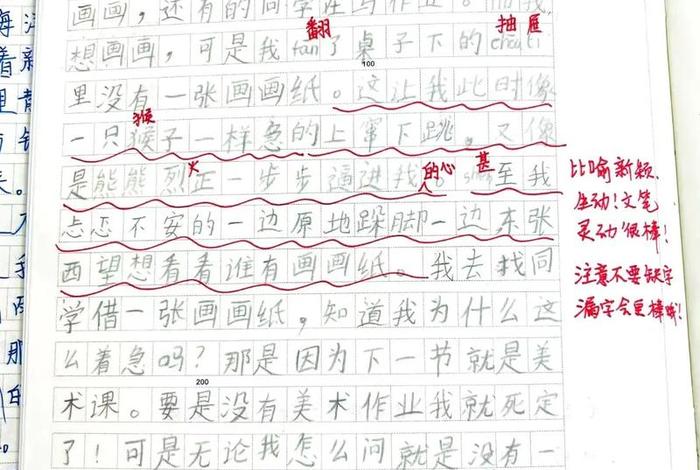 画画，还有的同学在写作业。而我，
翻
抽屉
想画画，可是我fan了桌子下的chouti
100
里没有一张画画纸。这让我此时像
猴
一只猴子一样急的上窜下跳，又像
火
的心
甚
是熊熊烈正一步步逼进我 至我
忐忑不安的一边原地跺脚一边东张
西望想看看谁有画画纸。我去找同
学借一张画画纸，知道我为什么这
么着急吗？那是因为下一节就是美
200
术课。要是没有美术作业我就死定
了！可是无论我怎么问就是没有一
比喻新颖、
生动！文笔
灵动！很棒！
注意不要缺字
漏字会更棒哦！